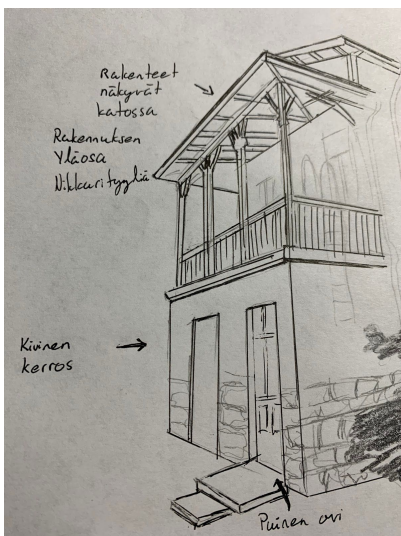 Rakenteet
näkyvät
katossa
Rakennuksen
Yläosa
Nikkarityyliä
Kivinen
kerros
Puinen ovi